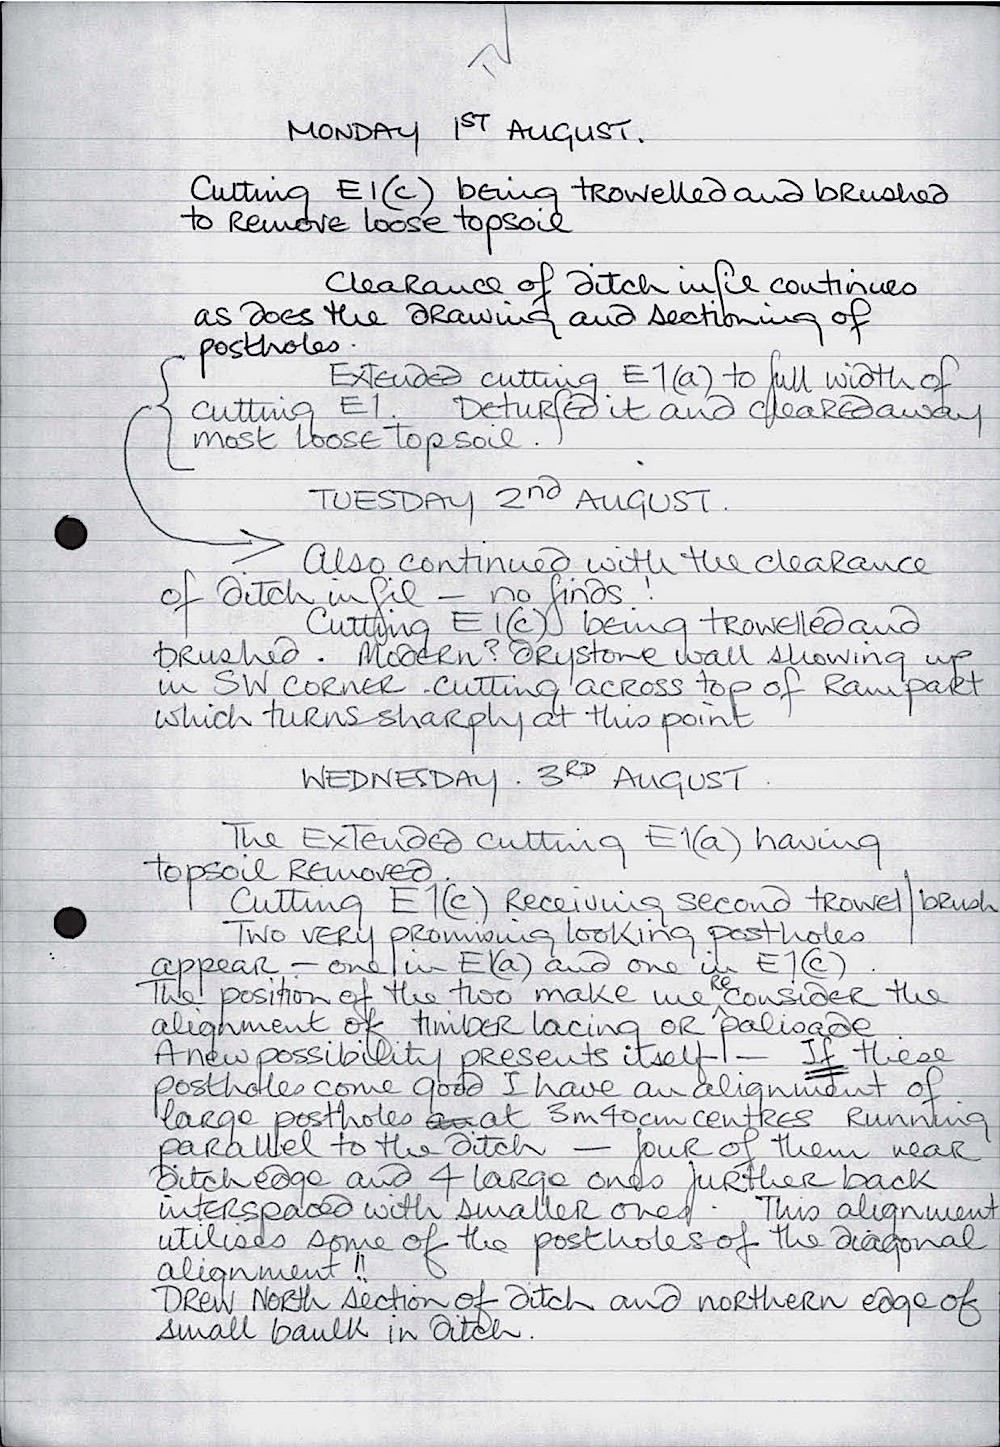 MONDAY 1ST AUGUST.
Cutting E1(c) being trowelled and brushed
to remove loose topsoil
Clearance of ditch infil continues
as does the drawing and sectioning of
postholes.
Extended cutting E1(a) to full width of
cutting E1. Deturfed it and cleared away
most loose topsoil.
TUESDAY 2nd AUGUST.
Also continued with the clearance
of ditch infil – no finds!
Cutting E1(c) being trowelled and
brushed. Modern? drystone wall showing up
in SW corner. cutting across top of Rampart
which turns sharply at this point
WEDNESDAY. 3RD AUGUST.
The Extended cutting E1(a) having
topsoil removed.
Cutting E1(c) Receiving second trowel/brush
Two very promising looking postholes
appear – one in E1(a) and one in E1(c).
The position of the two make me REconsider the
alignment of timber lacing or palisade
A new possibility presents itself! – If these
postholes come good I have an alignment of
large postholes at 3m40cm centres running
parallel to the ditch – four of them near
ditch edge and 4 large ones further back
interspaced with smaller ones. This alignment
utilises some of the postholes of the diagonal
alignment!!
Drew North section of ditch and northern edge of
small baulk in ditch.